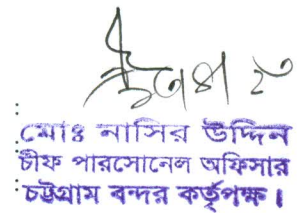 মোঃ নাসির উদ্দিন
চীফ পারসোনেল অফিসার
চট্টগ্রাম বন্দর কর্তৃপক্ষ।